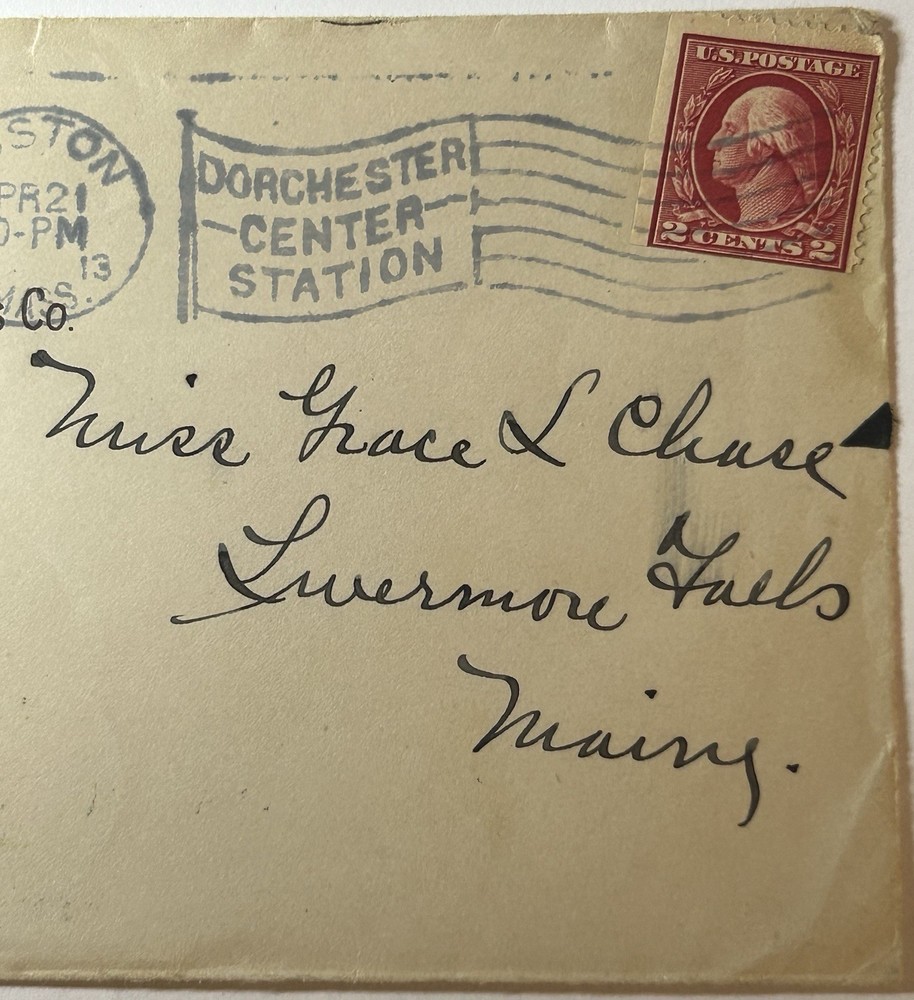 U.S. POSTAGE
2 CENTS 2
STON
PR 21
0-PM
13
DORCHESTER
CENTER
STATION
s Co.
Miss Grace L Chase
Livermore Falls
Maine.